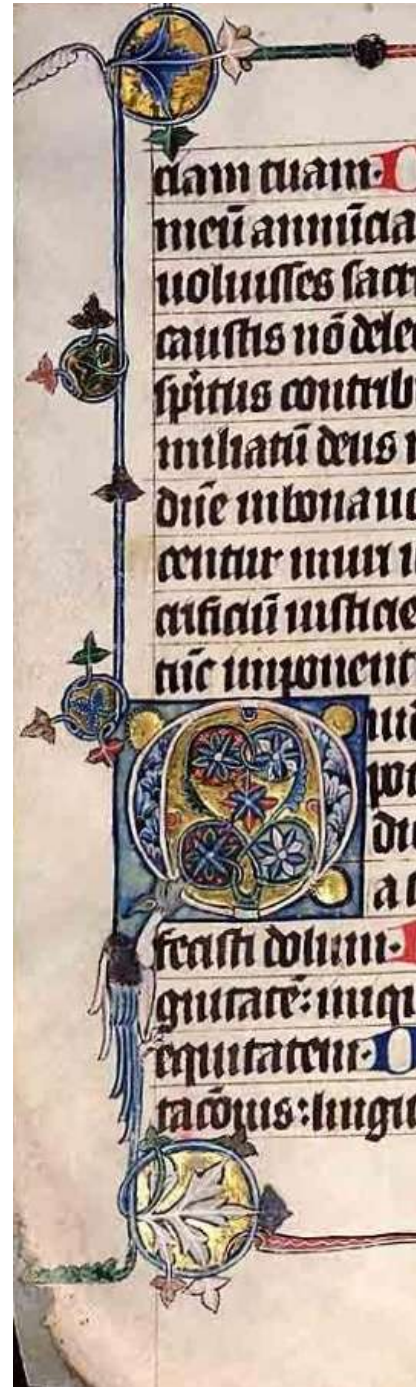 dam tuam· 
meū annūcia
uoluisses sacri
caustis nō dele
sp̄itus contrib
miliatū deus n
dn̄e in bona uo
centur muri i
crificiū iusticie
tūc imponent
Q
po
di
a
fecisti dolum·
quitatē: iniqu
equitatem·
tacōnis: lingu